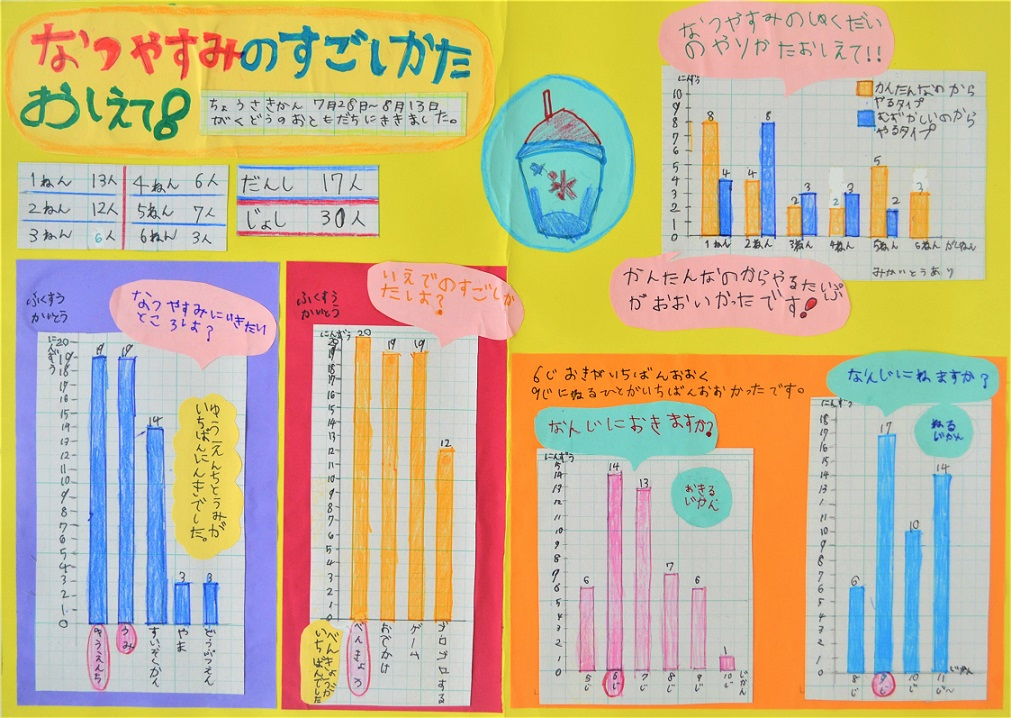 なつやすみのすごしかた
おしえて8
ちょうさきかん 7月28日〜8月13日
がくどうのおともだちにききました。
1ねん 13人 4ねん 6人
2ねん 12人 5ねん 7人
3ねん 6人 6ねん 3人
だんし 17人
じょし 30人
氷
なつやすみのしゅくだい
のやりかたおしえて!!
にんずう
10
9
8
7
6
5
4
3
2
1
0
8 4 4 8 2 3 2 3 5 2 3
1ねん 2ねん 3ねん 4ねん 5ねん 6ねん がくねん
かんたんなのから
やるタイプ
むずかしいのから
やるタイプ
みかいとうあり
かんたんなのからやるたいぷ
がおおいかたです!
ふくすう
かいとう
なつやすみにいきたい
ところは?
にんずう
20
19
18
17
16
15
14
13
12
11
10
9
8
7
6
5
4
3
2
1
0
19 19 14 3 3
ゆうえんち うみ すいぞくかん やま どうぶつえん
ゆうえんちとうみが
いちばんにんきでした。
ふくすう
かいとう
いえでのすごしか
たは?
にんずう
20
19
18
17
16
15
14
13
12
11
10
9
8
7
6
5
4
3
2
1
0
20 19 19 12
べんきょう おでかけ ゲーム ゴロゴロする
べんきょうが
いちばんでした
6じおきがいちばんおおく
9じにねるひとがいちばんおおかったです。
なんじにおきますか?
にんずう
15
14
13
12
11
10
9
8
7
6
5
4
3
2
1
0
6 14 13 7 6 1
5じ 6じ 7じ 8じ 9じ 10じ じかん
おきる
じかん
なんじにねますか?
にんずう
18
17
16
15
14
13
12
11
10
9
8
7
6
5
4
3
2
1
0
6 17 10 14
8じ 9じ 10じ 11じ〜 じかん
ねる
じかん